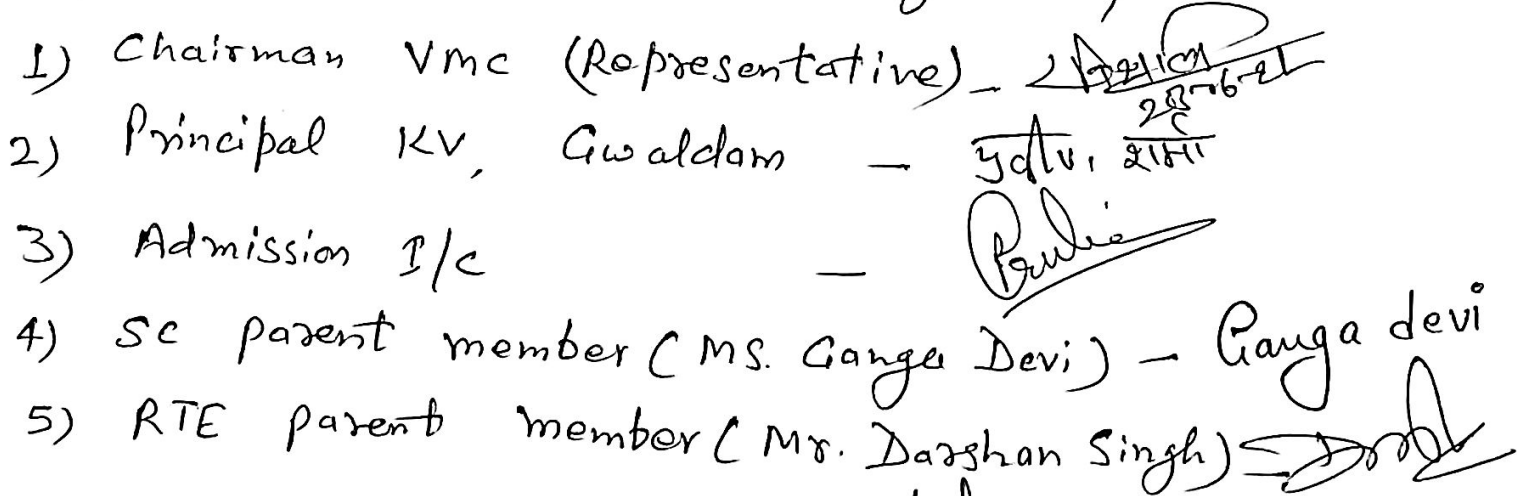 1) Chairman VMC (Representative) -
2) Principal KV, Gwaldam - शर्मा
3) Admission I/C -
4) SC parent member (Ms. Ganga Devi) - Ganga devi
5) RTE parent member (Mr. Darshan Singh) -